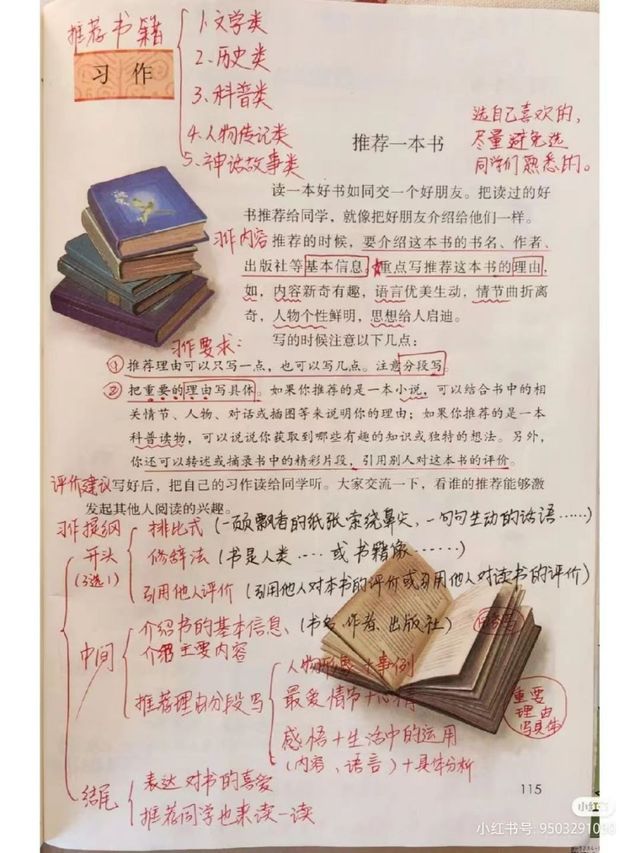 推荐书籍
1.文学类
2.历史类
3.科普类
4.人物传记类
5.神话故事类
习作
推荐一本书
选自己喜欢的,
尽量避免选
同学们熟悉的。
读一本好书如同交一个好朋友。把读过的好
书推荐给同学，就像把好朋友介绍给他们一样。
习作内容
推荐的时候，要介绍这本书的书名、作者、
出版社等基本信息，重点写推荐这本书的理由，
如，内容新奇有趣，语言优美生动，情节曲折离
奇，人物个性鲜明，思想给人启迪。
习作要求:
写的时候注意以下几点：
① 推荐理由可以只写一点，也可以写几点。注意分段写。
② 把重要的理由写具体。如果你推荐的是一本小说，可以结合书中的相
关情节、人物、对话或插图等来说明你的理由；如果你推荐的是一本
科普读物，可以说说你获取到哪些有趣的知识或独特的想法。另外，
你还可以转述或摘录书中的精彩片段，引用别人对这本书的评价。
评价建议
写好后，把自己的习作读给同学听。大家交流一下，看谁的推荐能够激
发起其他人阅读的兴趣。
习作提纲
开头
(3选1)
排比式 (一页页飘香的纸张萦绕鼻尖,一句句生动的话语……)
修辞法 (书是人类……或书籍像……)
引用他人评价 (引用他人对本书的评价或引用他人对读书的评价)
中间
介绍书的基本信息、(书名、作者、出版社)
介绍主要内容
推荐理由分段写
人物形象+事例
最爱情节+心情
感悟+生活中的运用
(内容、语言)+具体分析
重要
理由
写具体
结尾
表达对书的喜爱
推荐同学也来读一读
115
小红书
小红书号: 9503291090